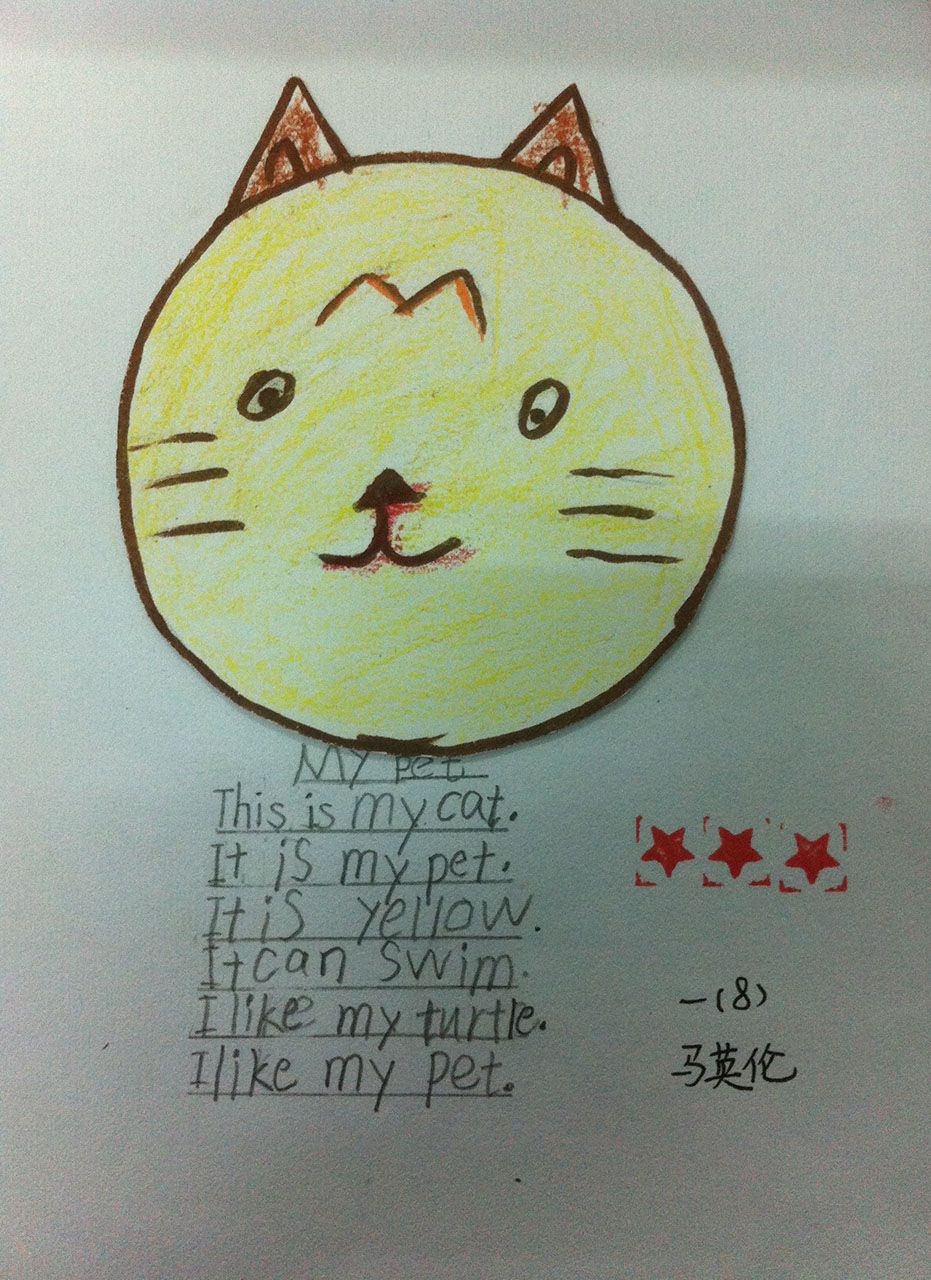 My pet
This is my cat.
It is my pet.
It is yellow.
It can swim.
I like my turtle.
I like my pet.
一(8)
马英伦